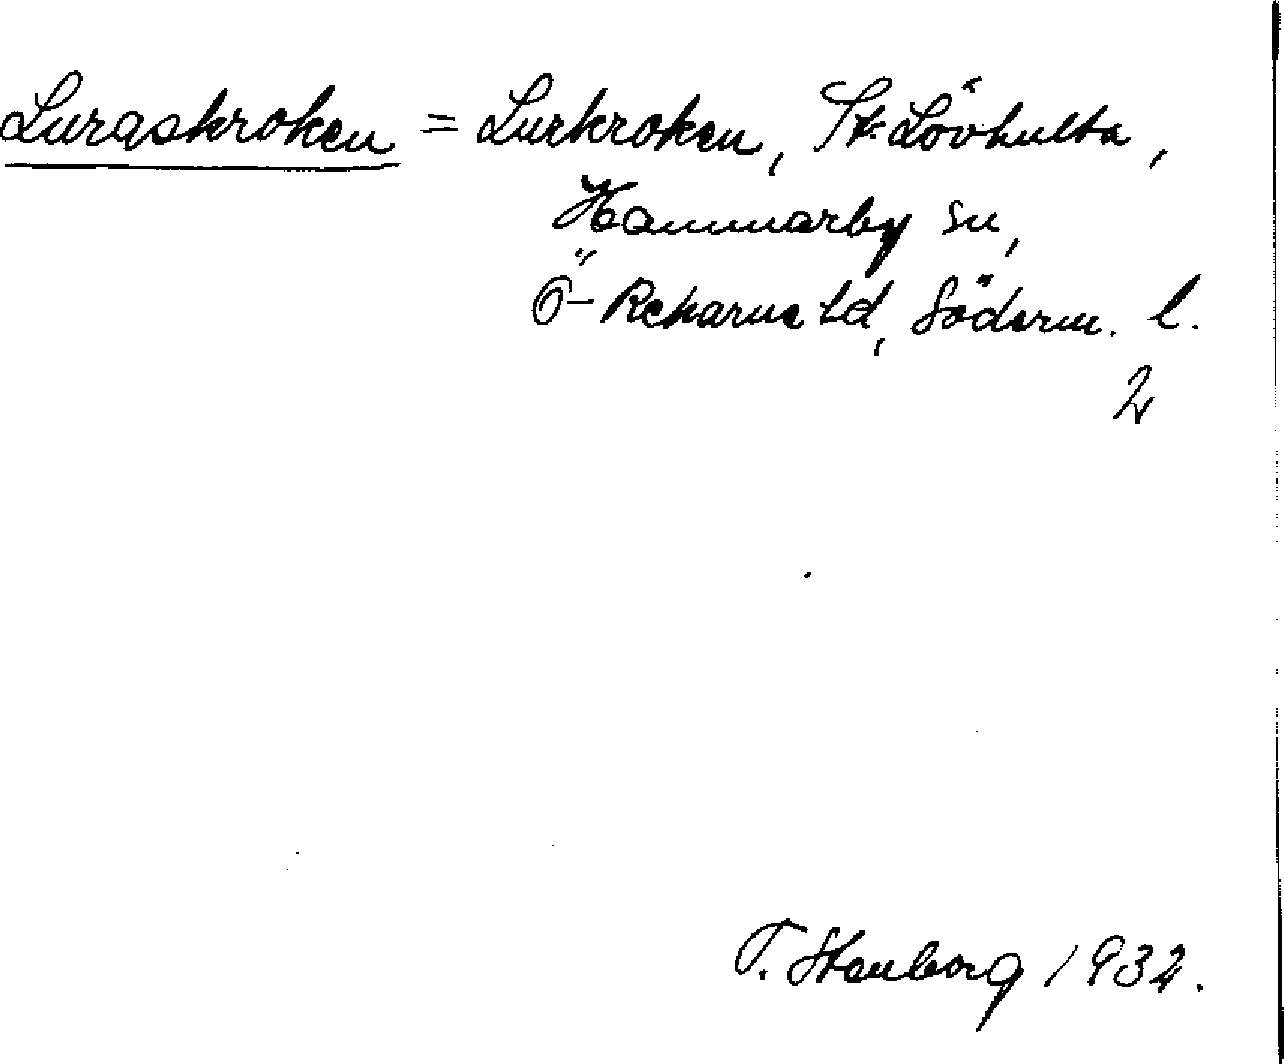 Luraskroken = Lurkroken, St. Lövhulta,
Hammarby sn,
Ö-Rekarne hd, Söderm. l.
2
T. Stenborg 1932.